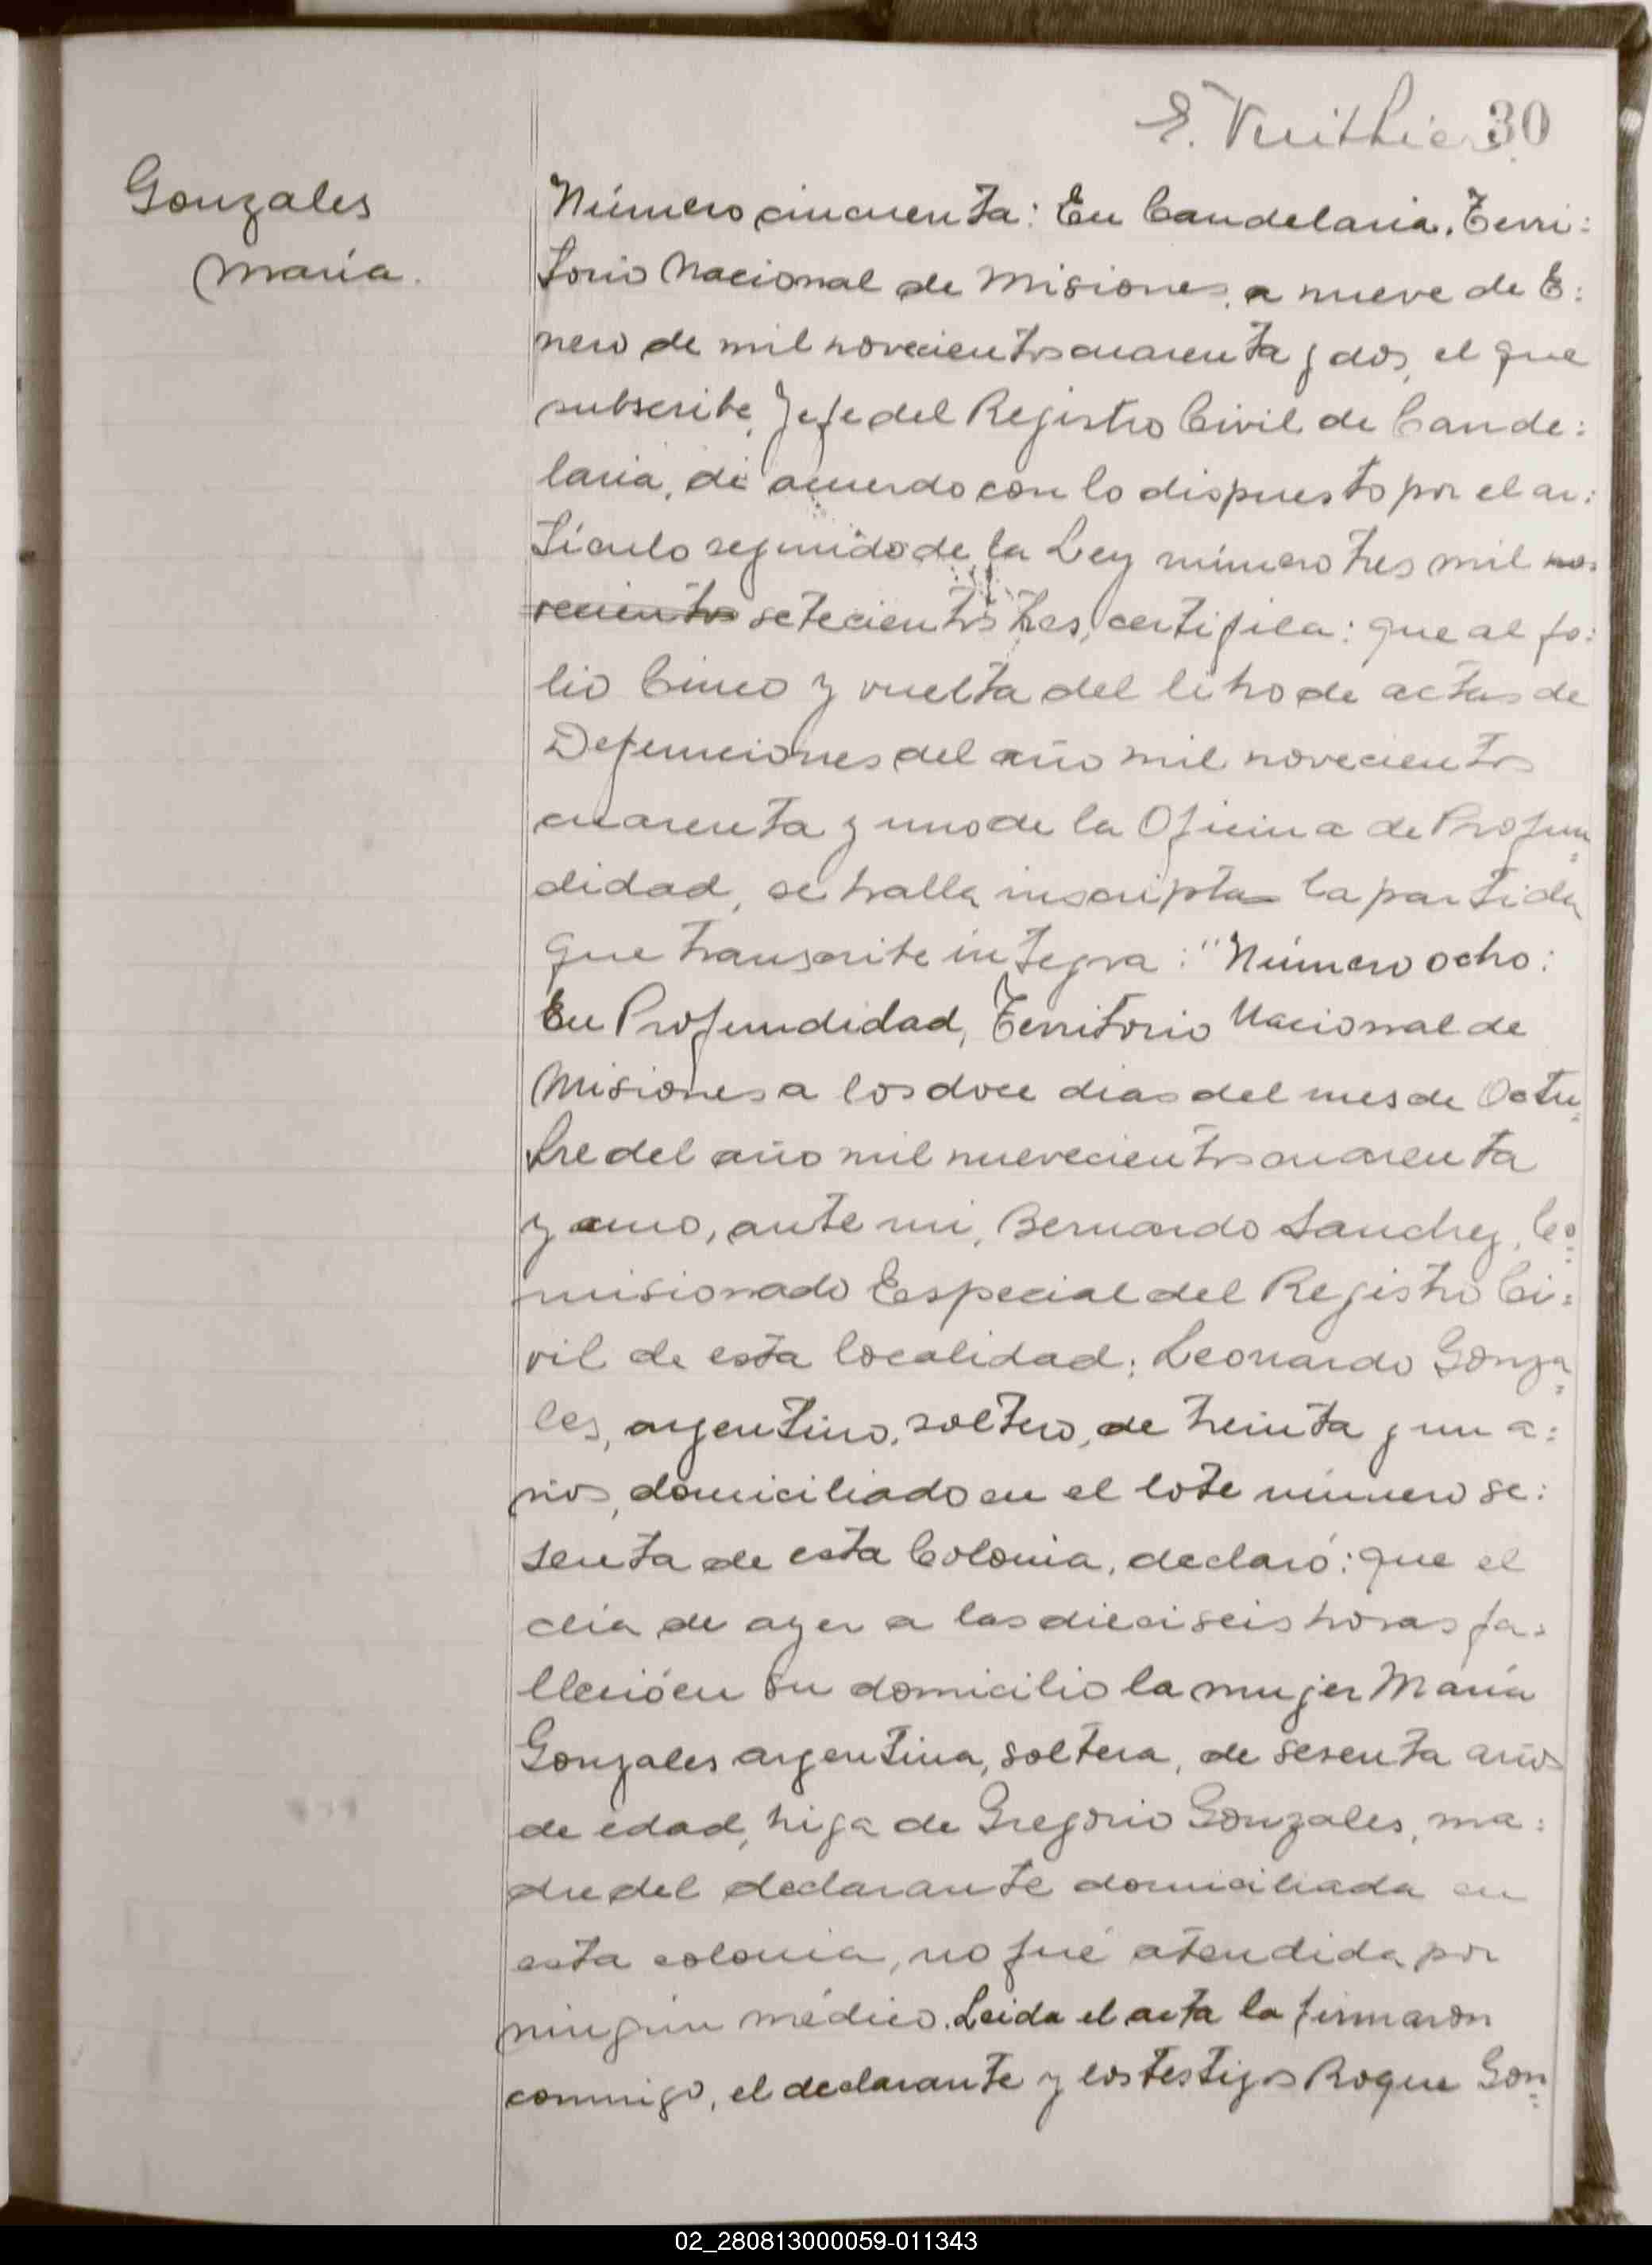 E. Vuithier 30
Gonzales
María.
Número cincuenta: En Candelaria, Terri:
torio Nacional de Misiones, a nueve de E:
nero de mil novecientos cuarenta y dos, el que
subscribe, Jefe del Registro Civil de Cande:
laria, de acuerdo con lo dispuesto por el ar:
tículo segundo de la Ley número tres mil no:
vecientos setecientos tres, certifica: que al fo:
lio Cinco y vuelta del libro de actas de
Defunciones del año mil novecientos
cuarenta y uno de la Oficina de Profun=
didad, se halla inscripta la partida
que transcribe integra: "Número ocho:
En Profundidad, Territorio Nacional de
Misiones a los doce dias del mes de Octu=
bre del año mil nuevecientos cuarenta
y uno, ante mi, Bernardo Sanchez, Co=
misionado Especial del Registro Ci:
vil de esta localidad; Leonardo Gonza=
les, argentino, soltero, de treinta y un a:
ños, domiciliado en el lote número se:
senta de esta Colonia, declaró: que el
día de ayer a las dieciseis horas fa:
lleció en su domicilio la mujer María
Gonzales argentina, soltera, de sesenta años
de edad, hija de Gregorio Gonzales, ma:
dre del declarante domiciliada en
esta colonia, no fué atendida por
ningún médico. Leida el acta la firmaron
conmigo, el declarante y los testigos Roque Gon=
02_280813000059-011343